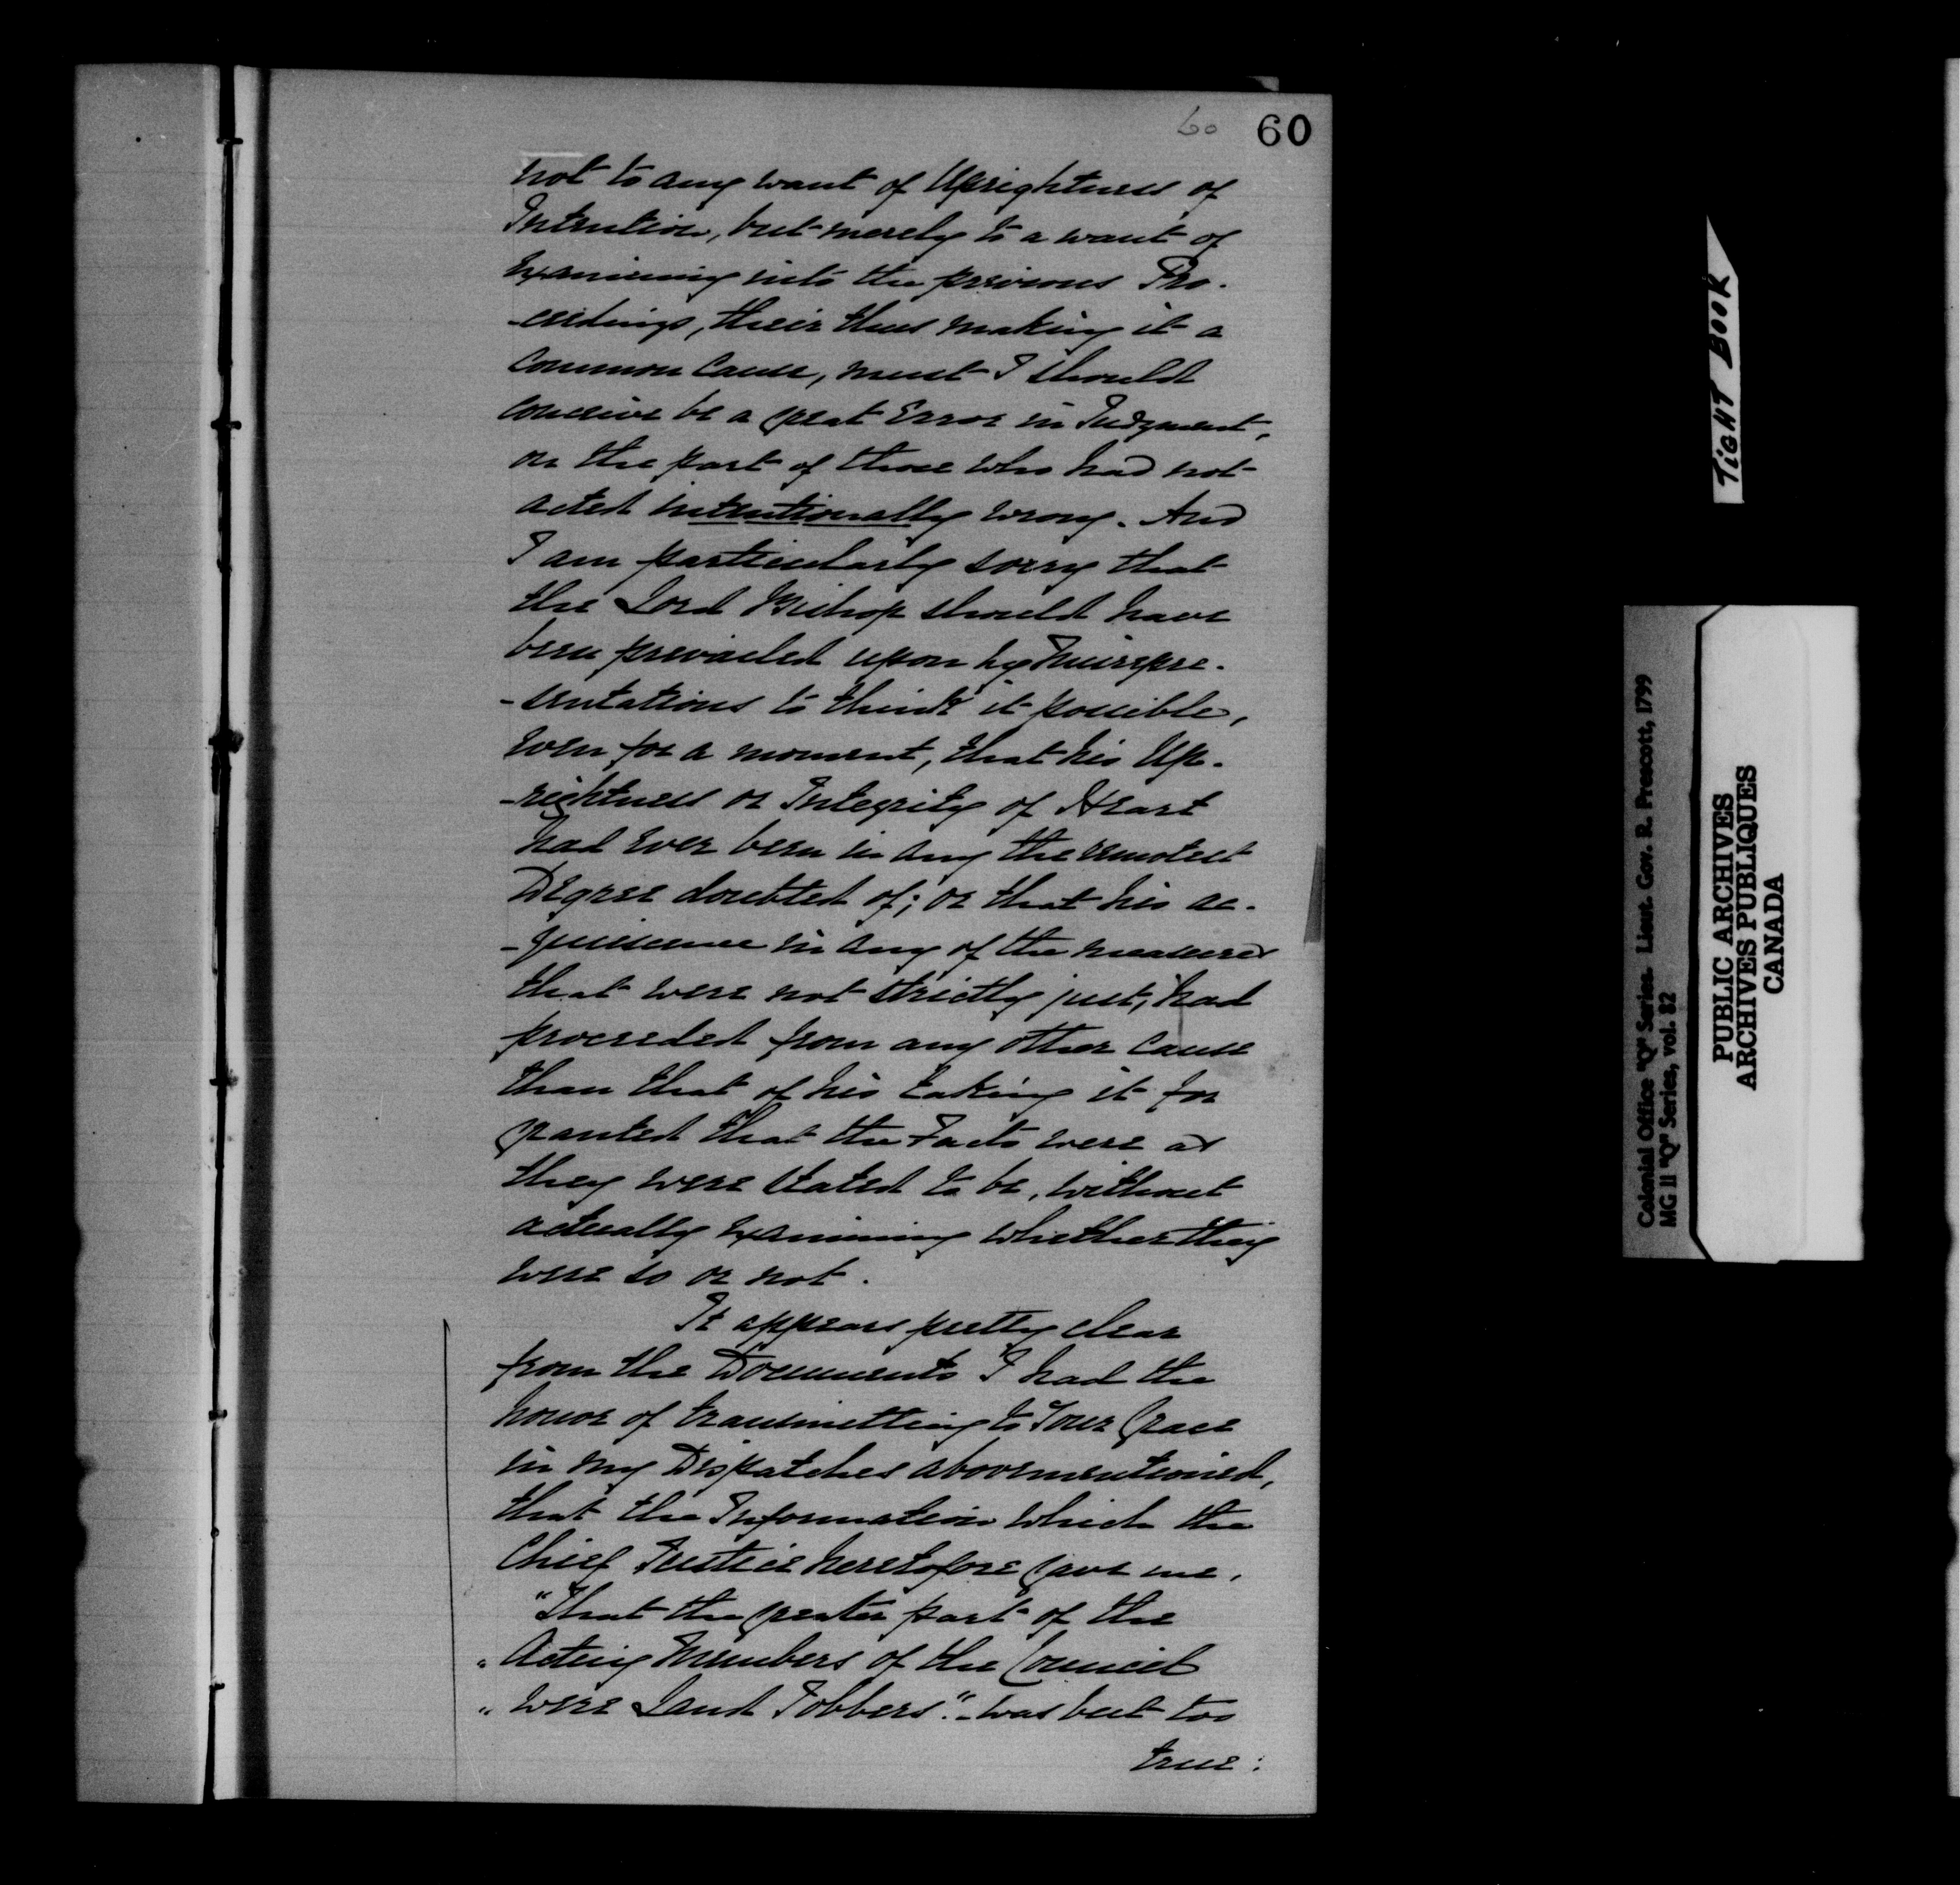 60 60
not to any want of Uprightness of
Intention, but merely to a want of
Examining into the previous Pro-
-ceedings, their thus making it a
Common Cause, must I should
conceive be a great Error in Judgment,
on the part of those who had not
acted intentionally wrong. And
I am particularly sorry that
the Lord Bishop should have
been prevailed upon by Misrepre-
-sentations to think it possible,
even for a moment, that his Up-
-rightness or Integrity of Heart
had ever been in any the remotest
Degree doubted of; or that his ac-
-quiescence in any of the measures
that were not strictly just, had
proceeded from any other Cause
than that of his taking it for
granted that the Facts were as
they were stated to be, without
actually Examining whether they
were so or not.
It appears pretty clear
from the Documents I had the
honor of transmitting to Your Grace
in my Dispatches abovementioned,
that the Information which the
Chief Justice heretofore gave me,
"That the greater part of the
"Acting Members of the Council
"were Land Jobbers". was but too
true:
TIGHT BOOK
Colonial Office "Q" Series. Lieut. Gov. R. Prescott, 1799
MG 11 "Q" Series, vol. 82
PUBLIC ARCHIVES
ARCHIVES PUBLIQUES
CANADA